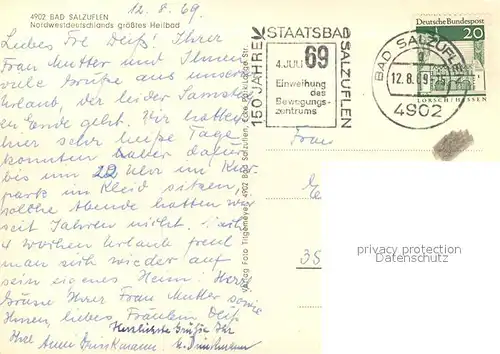 12.8.69
4902 BAD SALZUFLEN
Nordwestdeutschlands größtes Heilbad
Liebes Frl Deiß! Ihrer
Frau Mutter und Ihnen
viele Grüße aus unserem
Urlaub, der leider Samstag
zu Ende geht. Wir hatten
hier sehr heiße Tage
konnten daher dafür
bis um 22 Uhr im Kur-
park im Kleid sitzen,
solche Abende hatten wir
seit Jahren nicht. Nach
4 Wochen Urlaub freut
man sich wieder auf
sein eigenes Heim! Herzl.
Grüße Ihrer Frau Mutter sowie
Ihnen, liebes Fräulein Deiß
Herzlichste Grüße Ihr
Ihre Anne Brinkmann.
Verlag Foto Trägemeyer, 4902 Bad Salzuflen, Ecke Str.
150 JAHRE STAATSBAD SALZUFLEN
4. JULI 69
Einweihung
des
Bewegungs-
zentrums
BAD SALZUFLEN
12.8.69-15
4902
Deutsche Bundespost
20
LORSCH/HESSEN
Frau
35
watermark protection
www.papierosammler.com